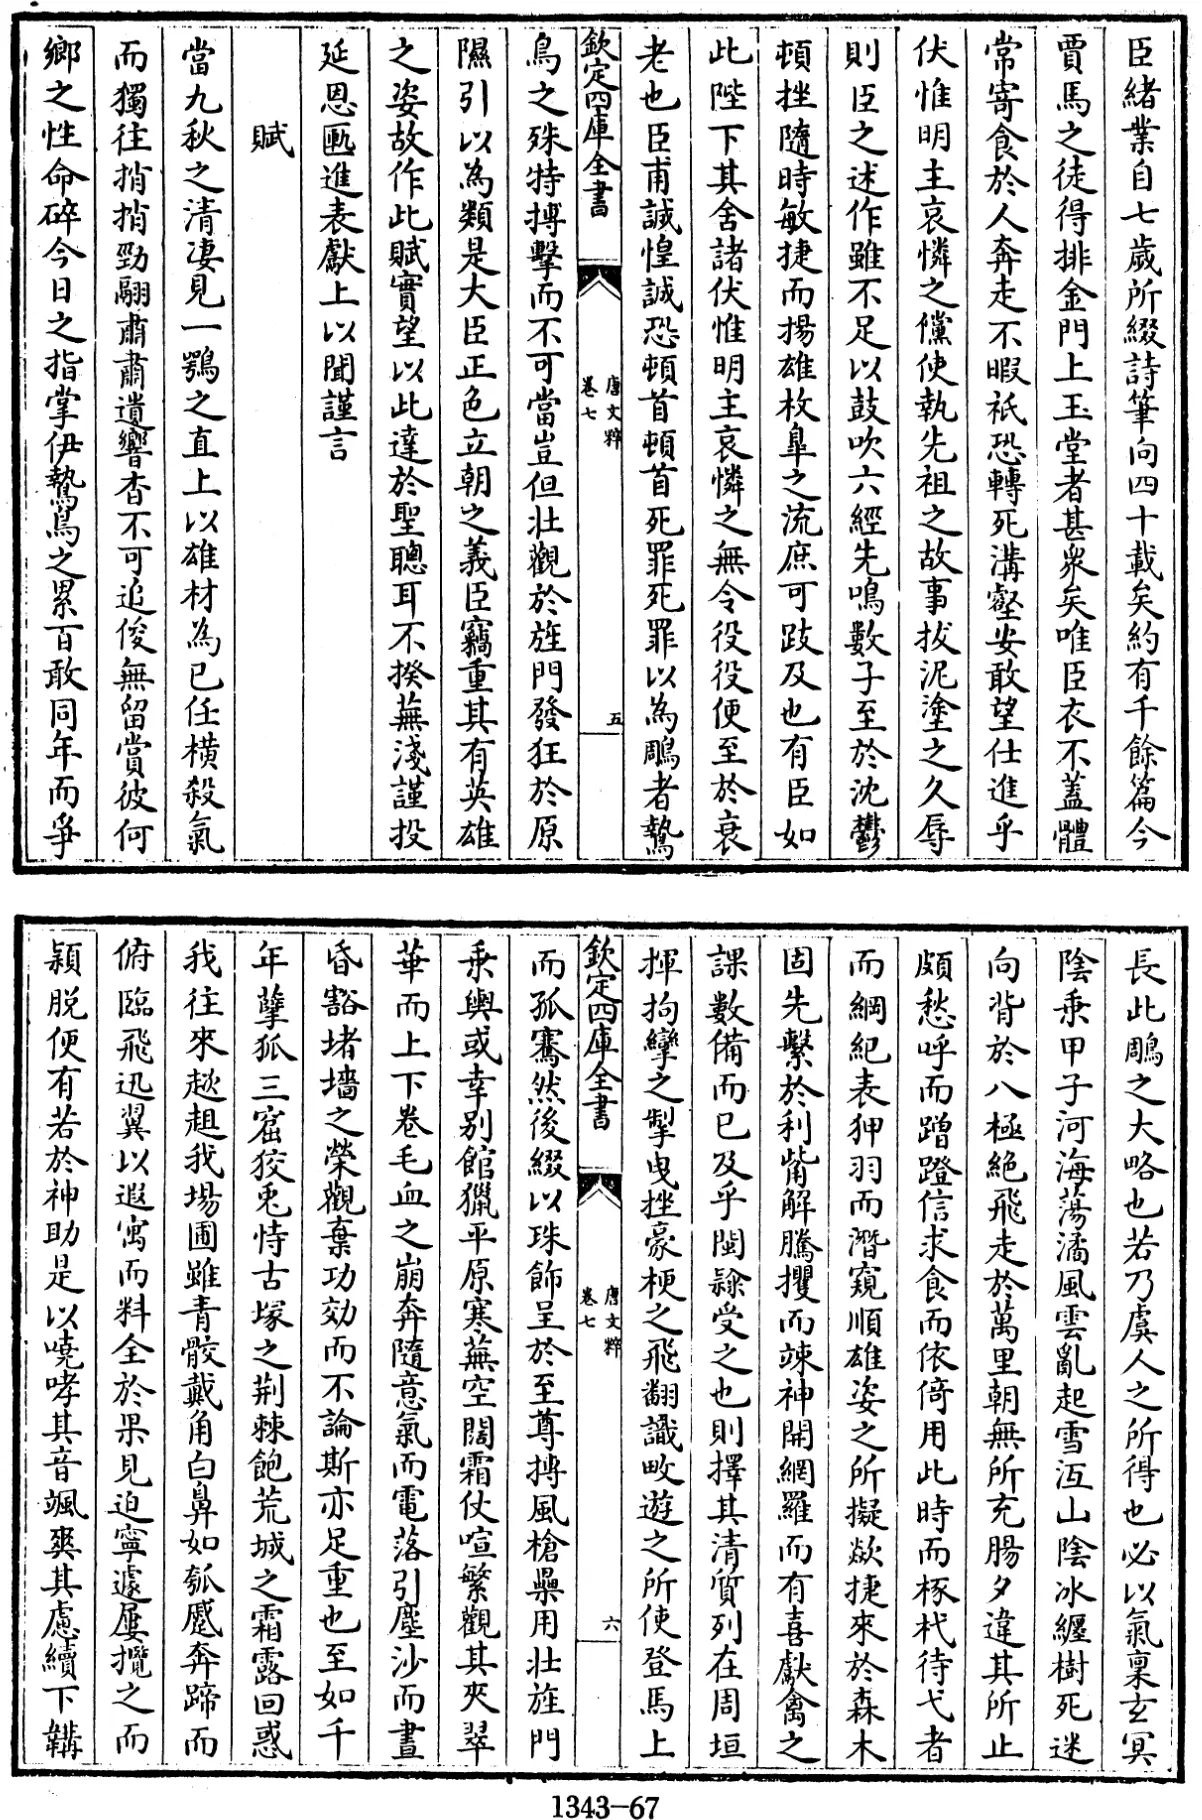 臣緒業自七歳所綴詩筆向四十載矣約有千餘篇今
賈馬之徒得排金門上玉堂者甚衆矣唯臣衣不蓋體
常寄食於人奔走不暇祇恐轉死溝壑安敢望仕進乎
伏惟明主哀憐之儻使執先祖之故事拔泥塗之久辱
則臣之述作雖不足以鼓吹六經先鳴數子至於沈鬱
頓挫隨時敏捷而揚雄枚臯之流庶可跂及也有臣如
此陛下其舍諸伏惟明主哀憐之無令役役便至於衰
老也臣甫誠惶誠恐頓首頓首死罪死罪以為鵰者鷙
欽定四庫全書
唐文粹
卷七
五
鳥之殊特搏擊而不可當豈但壯觀於旌門發狂於原
隰引以為類是大臣正色立朝之義臣竊重其有英雄
之姿故作此賦實望以此達於聖聰耳不揆蕪淺謹投
延恩匭進表獻上以聞謹言
賦
當九秋之清淒見一鶚之直上以雄材為已任橫殺氣
而獨往捎捎勁翮肅肅遺響杳不可追俊無留賞彼何
鄉之性命碎今日之指掌伊鷙鳥之累百敢同年而爭
長此鵰之大略也若乃虞人之所得也必以氣稟玄冥
陰乘甲子河海蕩潏風雲亂起雪沍山陰冰纏樹死迷
向背於八極絶飛走於萬里朝無所充腸夕違其所止
頗愁呼而蹭蹬信求食而依倚用此時而椓杙待弋者
而綱紀表狎羽而潛窺順雄姿之所擬欻捷來於森木
固先繫於利觜解騰攫而竦神開網羅而有喜獻禽之
課數備而已及乎閩隸受之也則擇其清質列在周垣
揮拘攣之掣曳挫豪梗之飛翻識畋遊之所使登馬上
欽定四庫全書
唐文粹
卷七
六
而孤騫然後綴以珠飾呈於至尊搏風槍櫐用壯旌門
乘輿或幸别館獵平原寒蕪空闊霜仗喧繁觀其夾翠
華而上下卷毛血之崩奔隨意氣而電落引塵沙而晝
昏豁堵墻之榮觀棄功効而不論斯亦足重也至如千
年孽狐三窟狡兎恃古塚之荆棘飽荒城之霜露回惑
我往來趑趄我場圃雖青骹戴角白鼻如瓠蹙奔蹄而
俯臨飛迅翼以遐寓而料全於果見迫寧遽屢攬之而
穎脱便有若於神助是以嘵哮其音颯爽其慮續下韝
1343-67